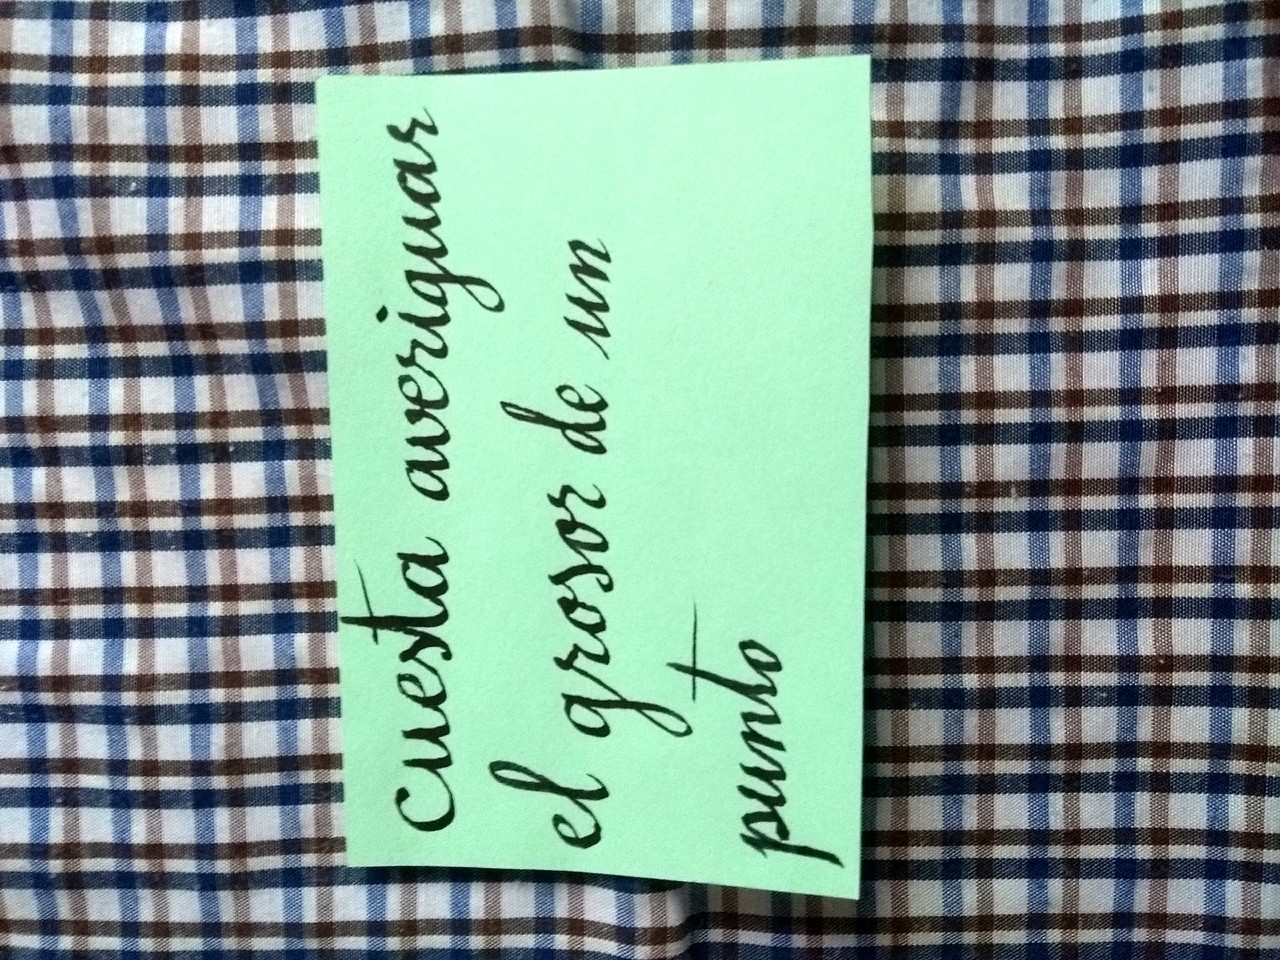 Cuesta averiguar
el grosor de un
punto